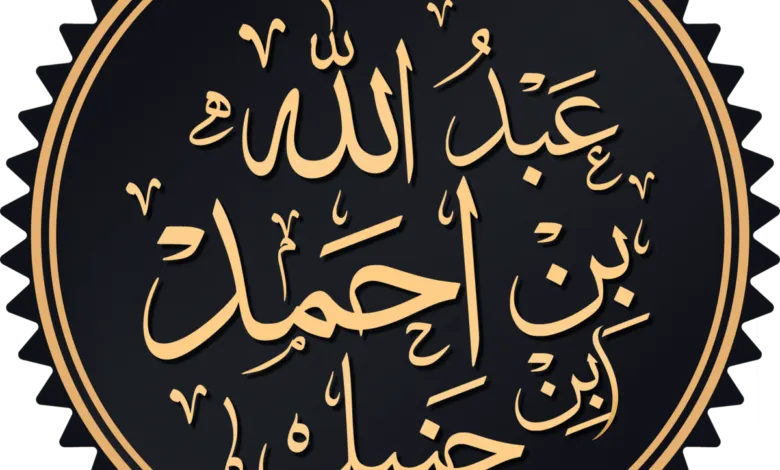 عَبْدُ اللّٰه
بِنْ احَمَدْ
ابِنْ حَنبل